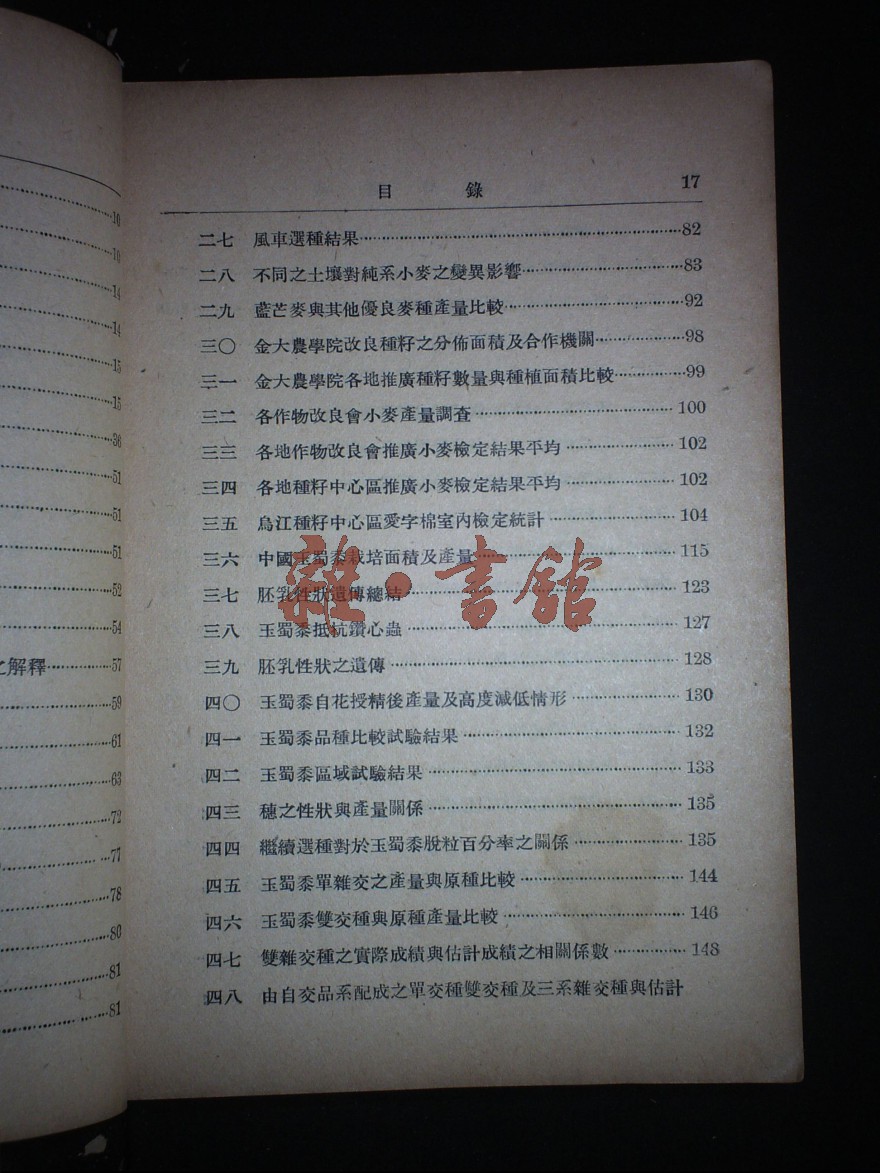 目錄 17
二七 風車選種結果 82
二八 不同之土壤對純系小麥之變異影響 83
二九 藍芒麥與其他優良麥種產量比較 92
三〇 金大農學院改良種籽之分佈面積及合作機關 98
三一 金大農學院各地推廣種籽數量與種植面積比較 99
三二 各作物改良會小麥產量調查 100
三三 各地作物改良會推廣小麥檢定結果平均 102
三四 各地種籽中心區推廣小麥檢定結果平均 102
三五 烏江種籽中心區愛字棉室內檢定統計 104
三六 中國玉蜀黍栽培面積及產量 115
三七 胚乳性狀遺傳總結 123
三八 玉蜀黍抵抗鑽心蟲 127
三九 胚乳性狀之遺傳 128
四〇 玉蜀黍自花授精後產量及高度減低情形 130
四一 玉蜀黍品種比較試驗結果 132
四二 玉蜀黍區域試驗結果 133
四三 穗之性狀與產量關係 135
四四 繼續選種對於玉蜀黍脫粒百分率之關係 135
四五 玉蜀黍單雜交之產量與原種比較 144
四六 玉蜀黍雙交種與原種產量比較 146
四七 雙雜交種之實際成績與估計成績之相關係數 148
四八 由自交品系配成之單交種雙交種及三系雜交種與估計
雜·書館
10
10
14
14
15
15
36
51
51
51
52
54
之解釋 57
59
61
63
72
77
78
80
81
81